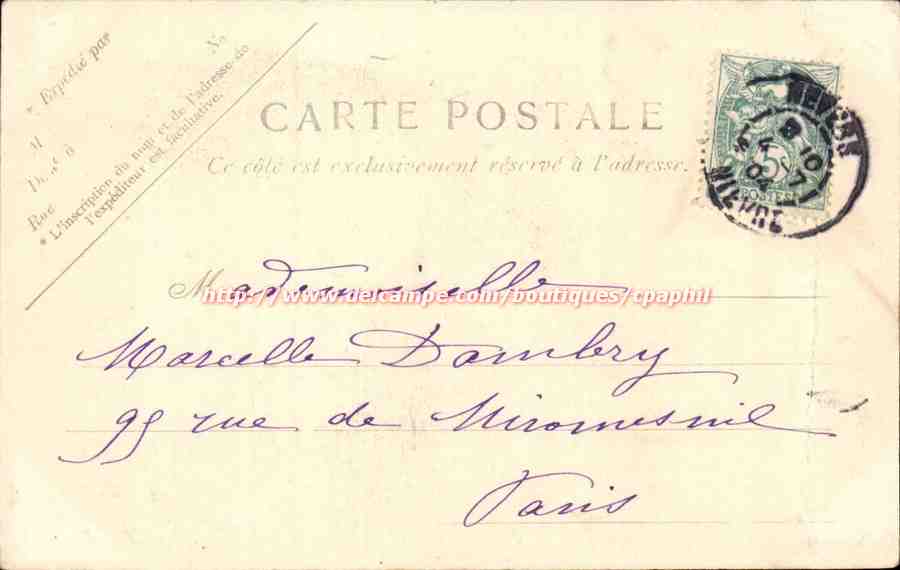 * Expédié par
M
No
Rue
* L'inscription du nom et de l'adresse de
l'expéditeur est facultative.
CARTE POSTALE
Ce côté est exclusivement réservé à l'adresse.
5c
POSTES
NEVERS
8
10
4
04
NIEVRE
Mademoiselle
http://www.delcampe.com/boutiques/cpaphil
Marcelle Dambry
99 rue de Miromesnil
Paris